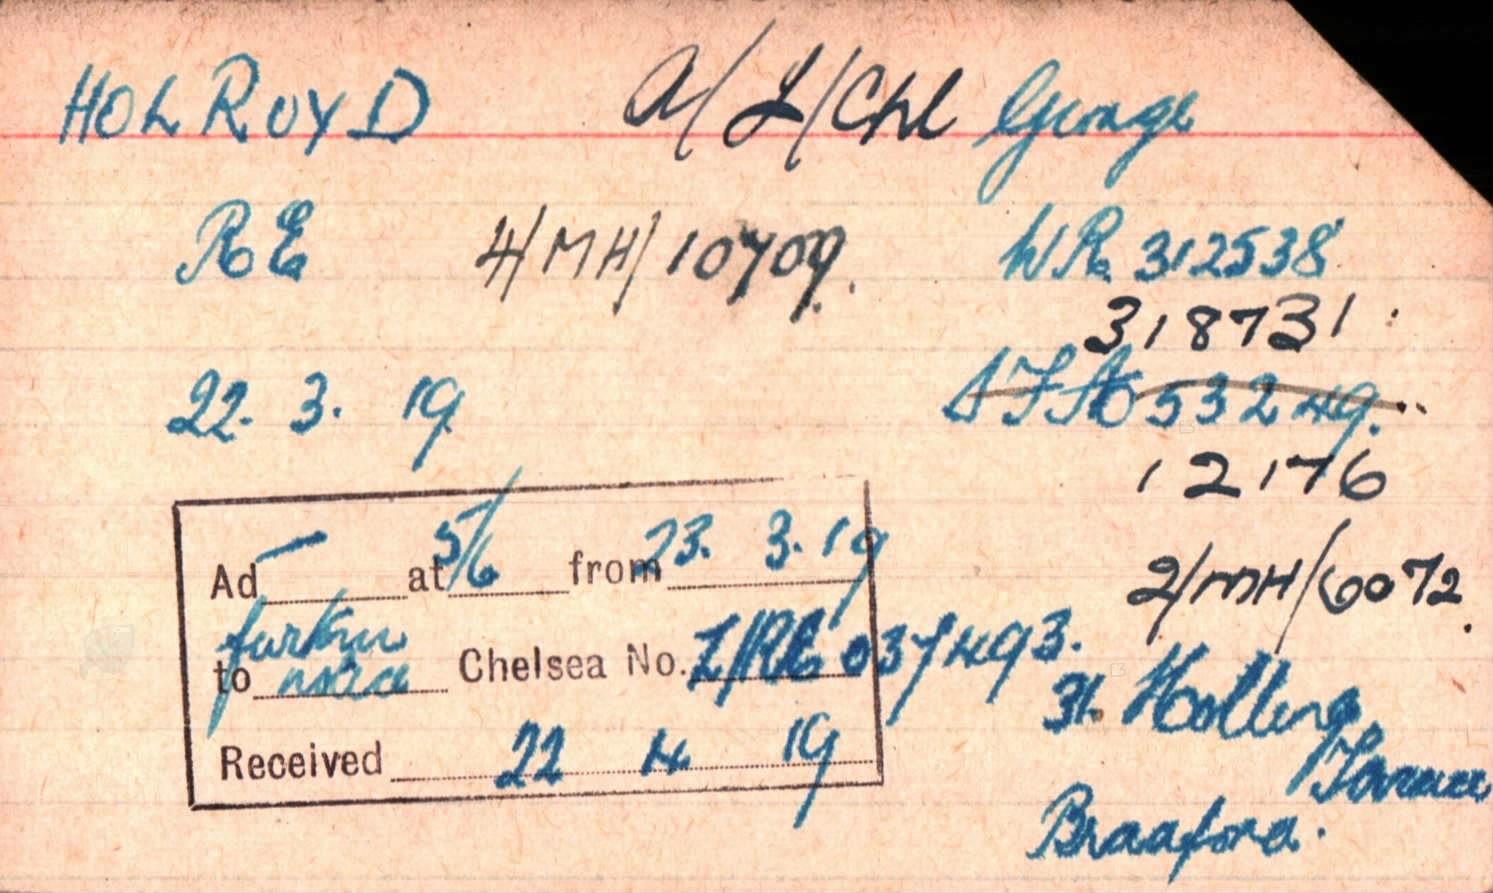 HOLROYD A/L/Cpl George
RE 4/MH/10709. WR. 312538
318731
22. 3. 19. 53249.
12176
Ad — at 5/6 from 23. 3. 19
2/MH/6072
further
to notice Chelsea No. 037493.
31. Holling
Received 22 4. 19
Terrace
Bradford.